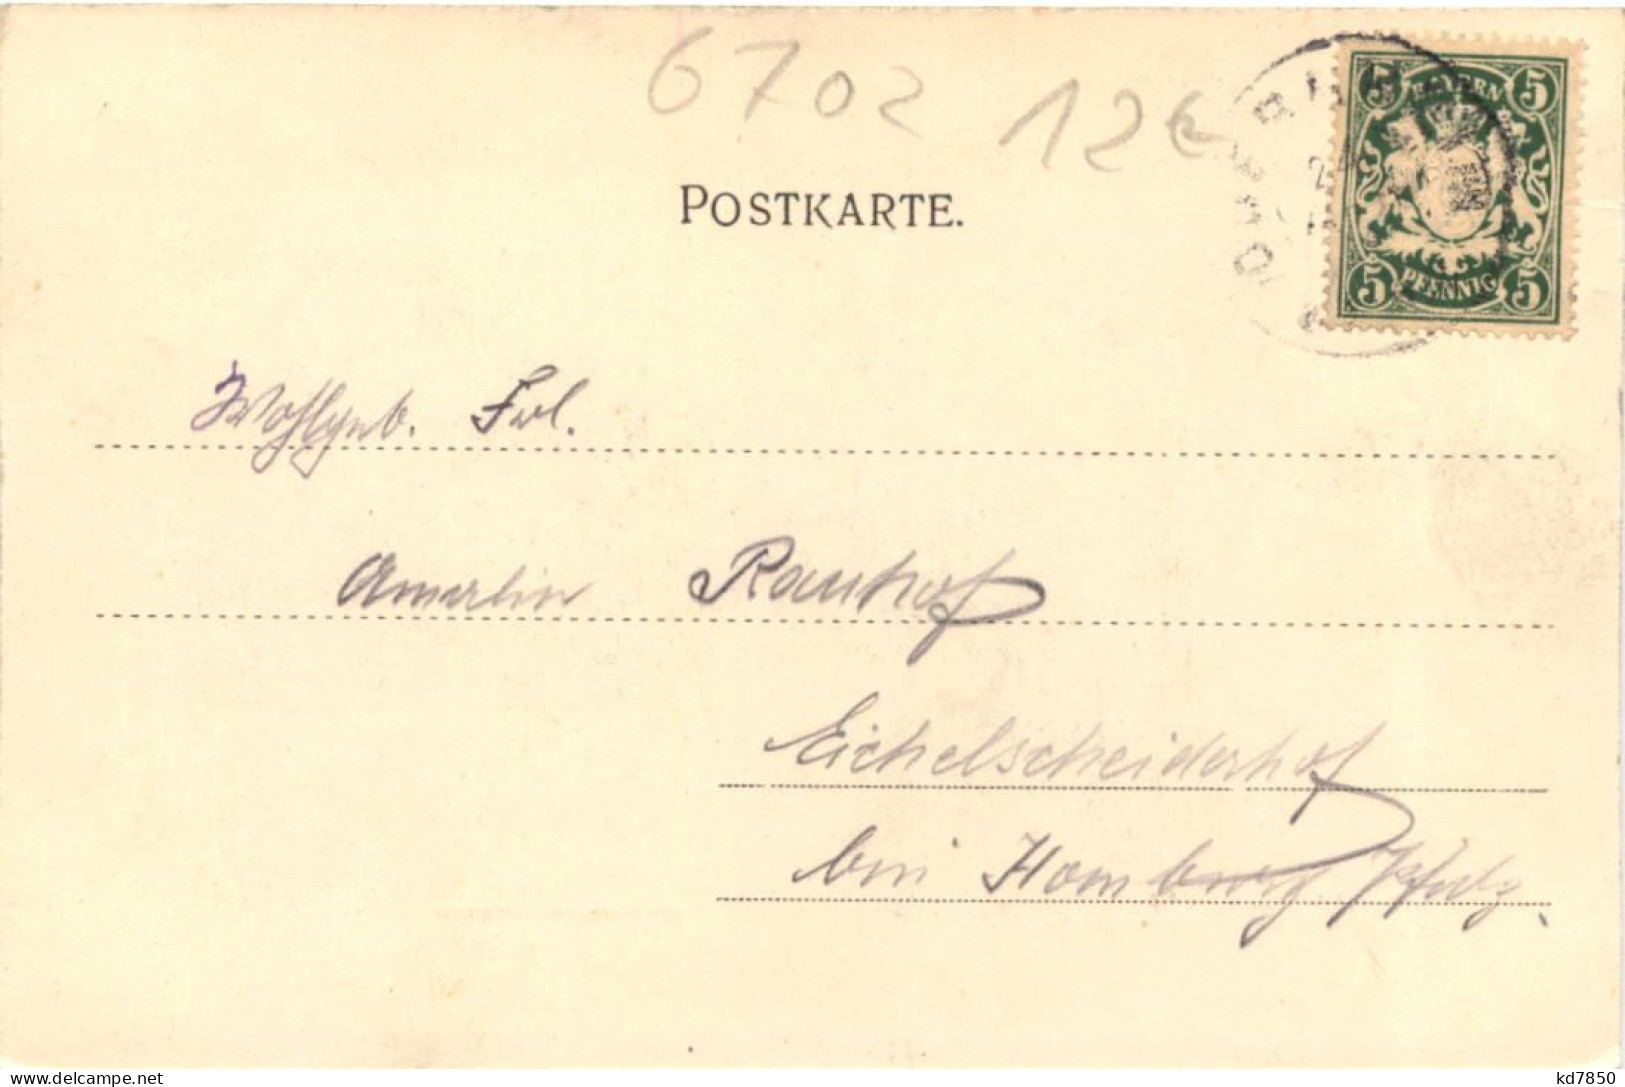 6702 12€
POSTKARTE.
5 BAYERN 5
5 PFENNIG 5
Wohlgeb. Frl.
Amalie Rauhof
Eichelscheiderhof
bei Homburg Pfalz.
kd7850